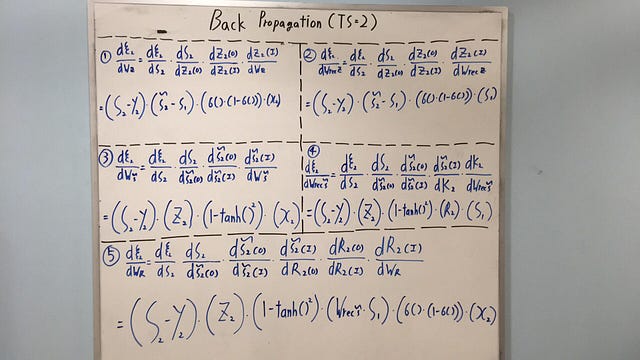 Back Propagation (TS=2)
① dξ₂/dWz = dξ₂/dS₂ · dS₂/dZ₂(O) · dZ₂(O)/dZ₂(I) · dZ₂(I)/dWz
= (S₂-Y₂)·(S̃₂-S₁)·(6()·(1-6()))·(X₂)
② dξ₂/dWrecz = dξ₂/dS₂ · dS₂/dZ₂(O) · dZ₂(O)/dZ₂(I) · dZ₂(I)/dWrecz
= (S₂-Y₂)·(S̃₂-S₁)·(6()·(1-6()))·(S₁)
③ dξ₂/dWs̃ = dξ₂/dS₂ · dS₂/dS̃₂(O) · dS̃₂(O)/dS̃₂(I) · dS̃₂(I)/dWs̃
= (S₂-Y₂)·(Z₂)·(1-tanh()²)·(X₂)
④ dξ₂/dWrecs̃ = dξ₂/dS₂ · dS₂/dS̃₂(O) · dS̃₂(O)/dS̃₂(I) · dS̃₂(I)/dK₂ · dK₂/dWrecs̃
= (S₂-Y₂)·(Z₂)·(1-tanh()²)·(R₂)·(S₁)
⑤ dξ₂/dWR = dξ₂/dS₂ dS₂/dS̃₂(O) · dS̃₂(O)/dS̃₂(I) · dS̃₂(I)/dR₂(O) · dR₂(O)/dR₂(I) · dR₂(I)/dWR
= (S₂-Y₂)·(Z₂)·(1-tanh()²)·(Wrecs̃·S₁)·(6()·(1-6()))·(X₂)